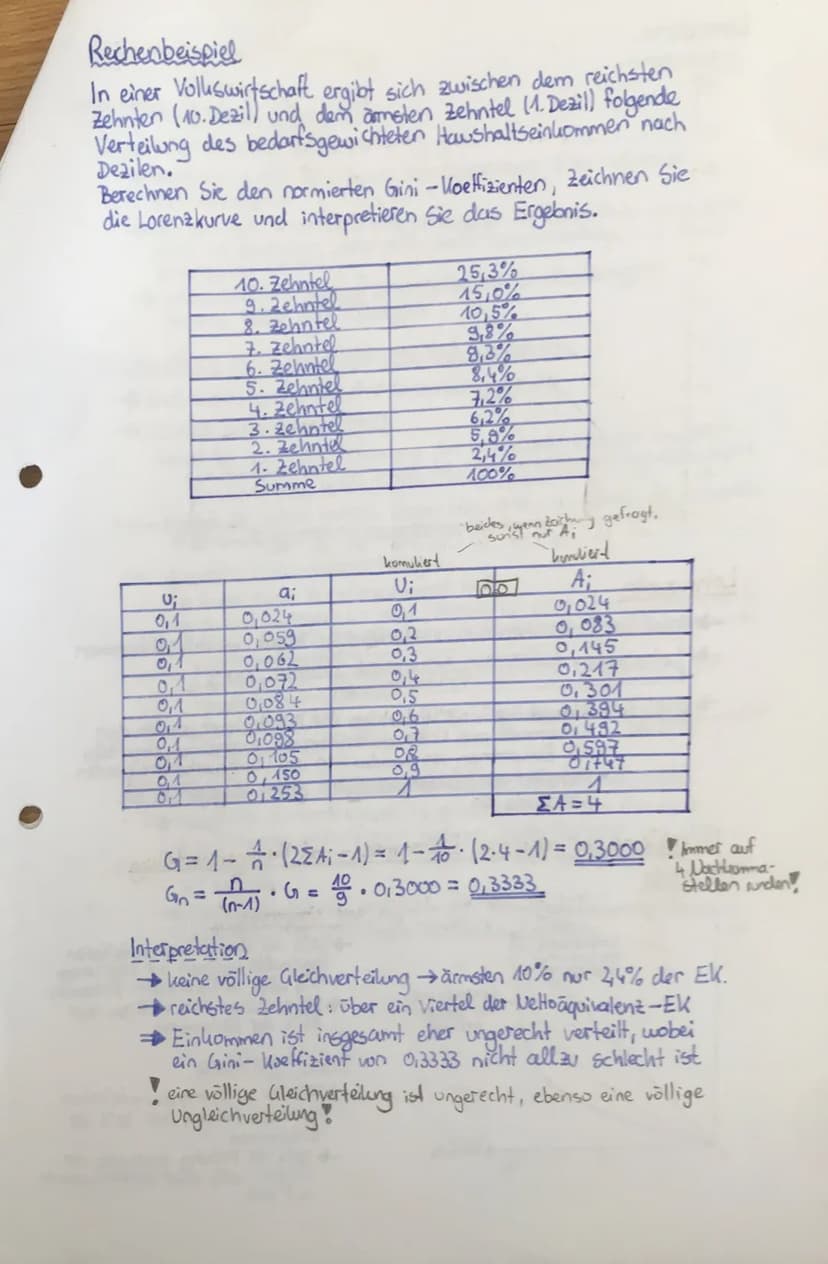 Rechenbeispiel
In einer Volkswirtschaft ergibt sich zwischen dem reichsten
Zehnten (10. Dezil) und dem ärmsten Zehntel (1. Dezil) folgende
Verteilung des bedarfsgewichteten Haushaltseinkommen nach
Dezilen.
Berechnen Sie den normierten Gini-Koeffizienten, zeichnen Sie
die Lorenzkurve und interpretieren Sie das Ergebnis.
10. Zehntel 25,3%
9. Zehntel 15,0%
8. Zehntel 10,5%
7. Zehntel 9,8%
6. Zehntel 9,3%
5. Zehntel 8,4%
4. Zehntel 7,2%
3. Zehntel 6,2%
2. Zehntel 5,9%
1. Zehntel 2,4%
Summe 100%
beides, wenn gefragt,
sonst nur Ai
komuliert kumuliert
Ui ai Ui Ai
0,1 0,024 0,1 0,024
0,1 0,059 0,2 0,083
0,1 0,062 0,3 0,145
0,1 0,072 0,4 0,217
0,1 0,084 0,5 0,301
0,1 0,093 0,6 0,394
0,1 0,098 0,7 0,492
0,1 0,105 0,8 0,597
0,1 0,150 0,9 0,747
0,1 0,253 1 1
ΣA = 4
G = 1 - 1/n · (2ΣAi - 1) = 1 - 1/10 · (2·4 - 1) = 0,3000 ! Immer auf
4 Nachkomma-
stellen runden!
Gn = n/(n-1) · G = 10/9 · 0,3000 = 0,3333
Interpretation
→ keine völlige Gleichverteilung → ärmsten 10% nur 2,4% der EK.
→ reichstes Zehntel: über ein Viertel der Nettoäquivalenz-EK
⇒ Einkommen ist insgesamt eher ungerecht verteilt, wobei
ein Gini-Koeffizient von 0,3333 nicht allzu schlecht ist
! eine völlige Gleichverteilung ist ungerecht, ebenso eine völlige
Ungleichverteilung!